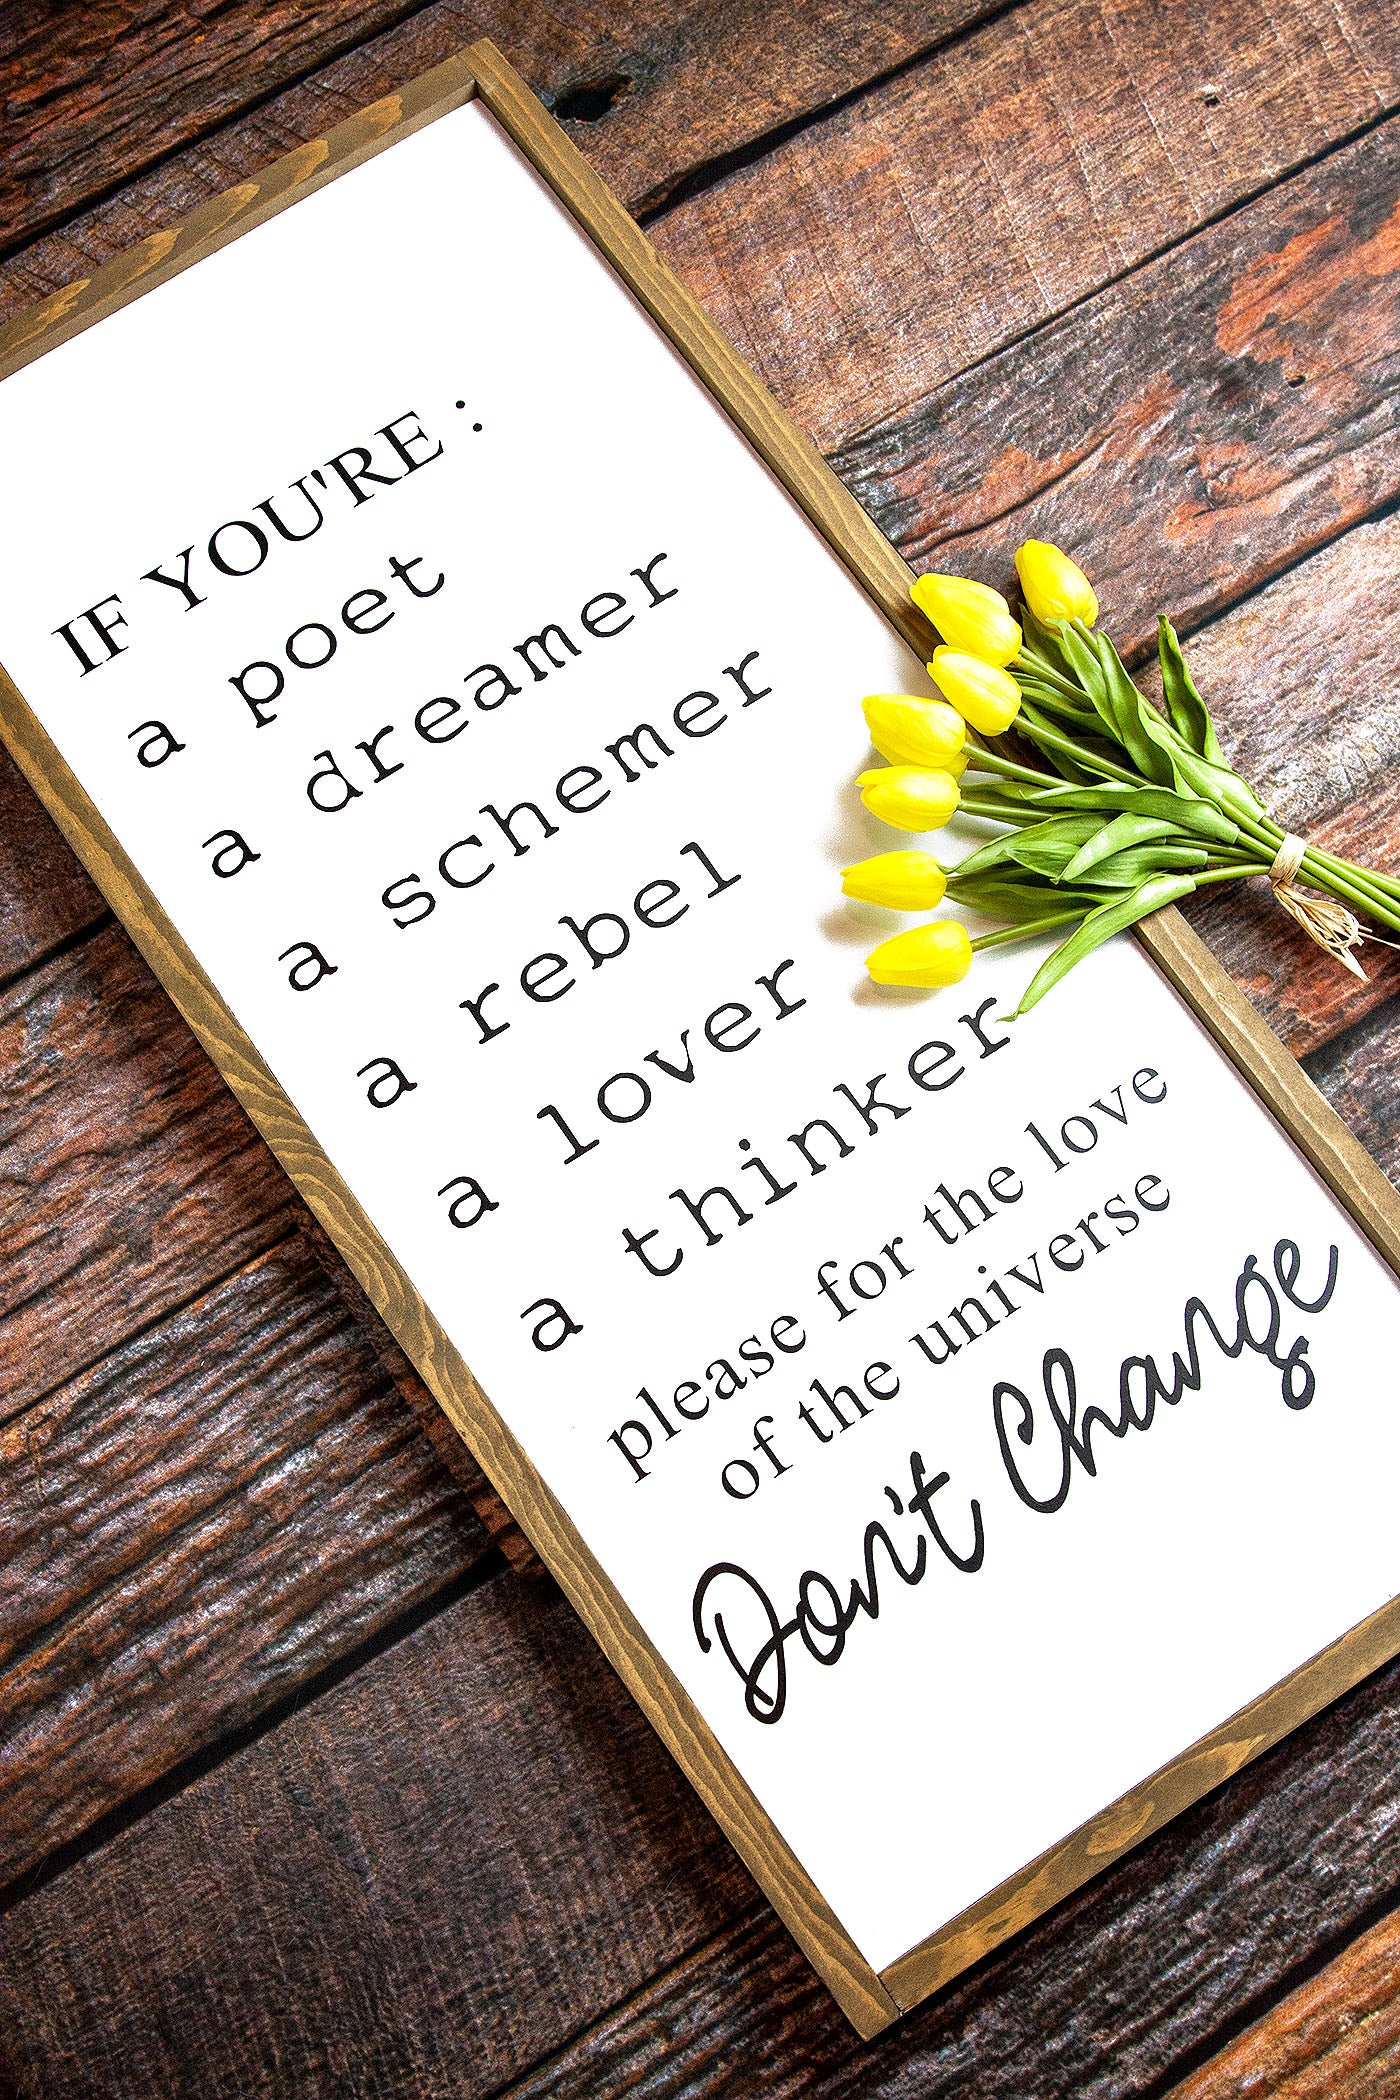 IF YOU'RE :
a poet
a dreamer
a schemer
a rebel
a lover
a thinker
please for the love
of the universe
Don't Change